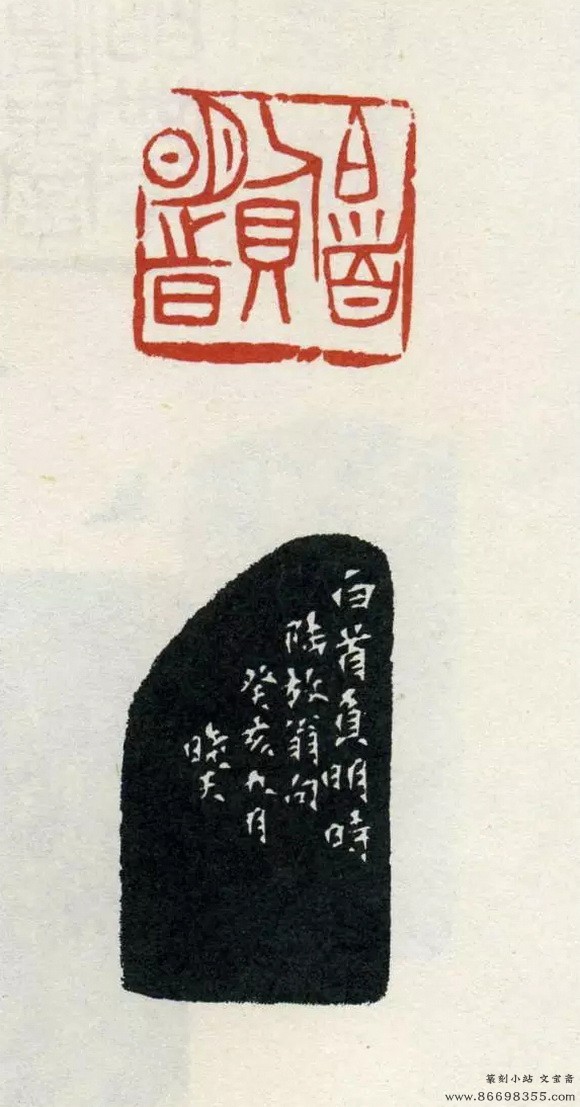 白首負明時
白首負明時
陸放翁句
癸亥九月
篆刻小站 文宝斋
www.86698355.com